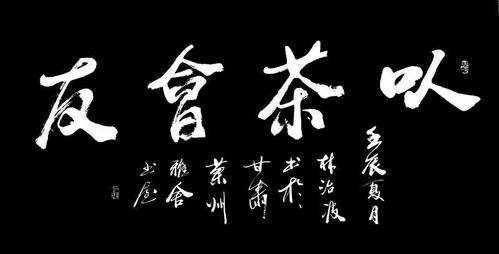 以茶會友
壬辰夏月
林治波
书於
甘肃
兰州
雅舍
书屋